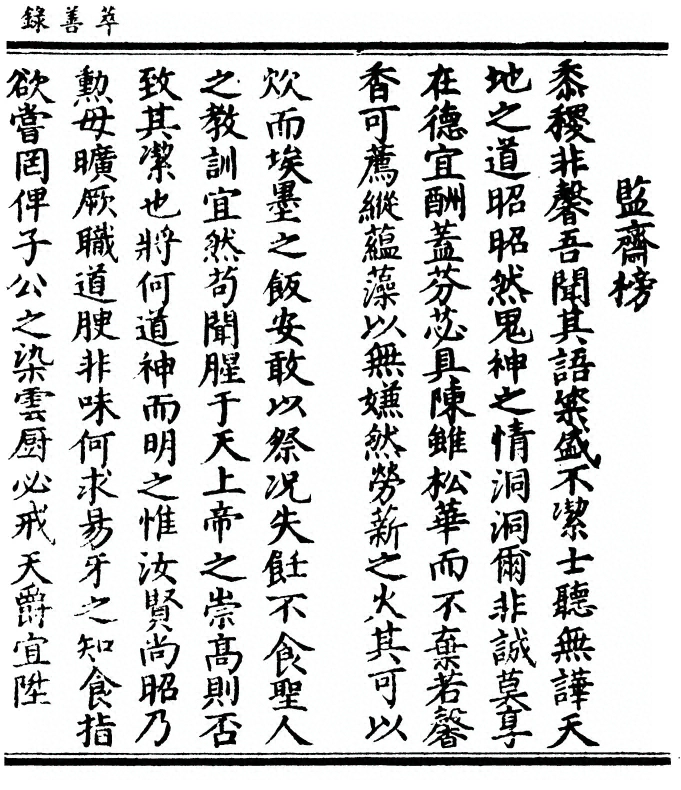 萃善錄
監齋榜
黍稷非馨吾聞其語粢盛不潔士聽無譁天
地之道昭昭然鬼神之情洞洞爾非誠莫享
在德宜酬蓋芬苾具陳雖松華而不棄若馨
香可薦縱蘊藻以無嫌然勞薪之火其可以
炊而埃墨之飯安敢以祭况失飪不食聖人
之教訓宜然苟聞腥于天上帝之崇高則否
致其潔也將何道神而明之惟汝賢尚昭乃
勳毋曠厥職道腴非味何求易牙之知食指
欲嘗罔俾子公之染雲厨必戒天爵宜陞